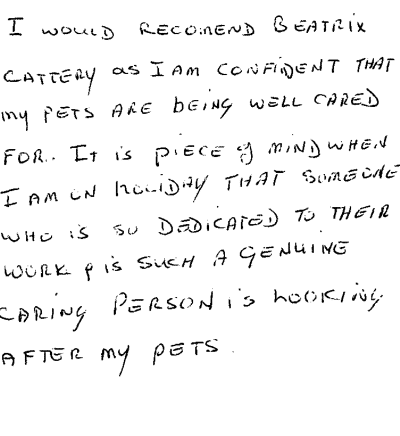 I WOULD RECOMEND BEATRIX
CATTERY as I AM CONFIDENT THAT
my PETS ARE bEING WELL CARED
FOR.. It is piECE of MIND WHEN
I AM ON HOLIDAY THAT SOMEONE
WHO iS SO DEDICATED TO THEIR
WORK & is SUCH A GENUINE
CARING PERSON is LOOKING
AFTER my PETS.